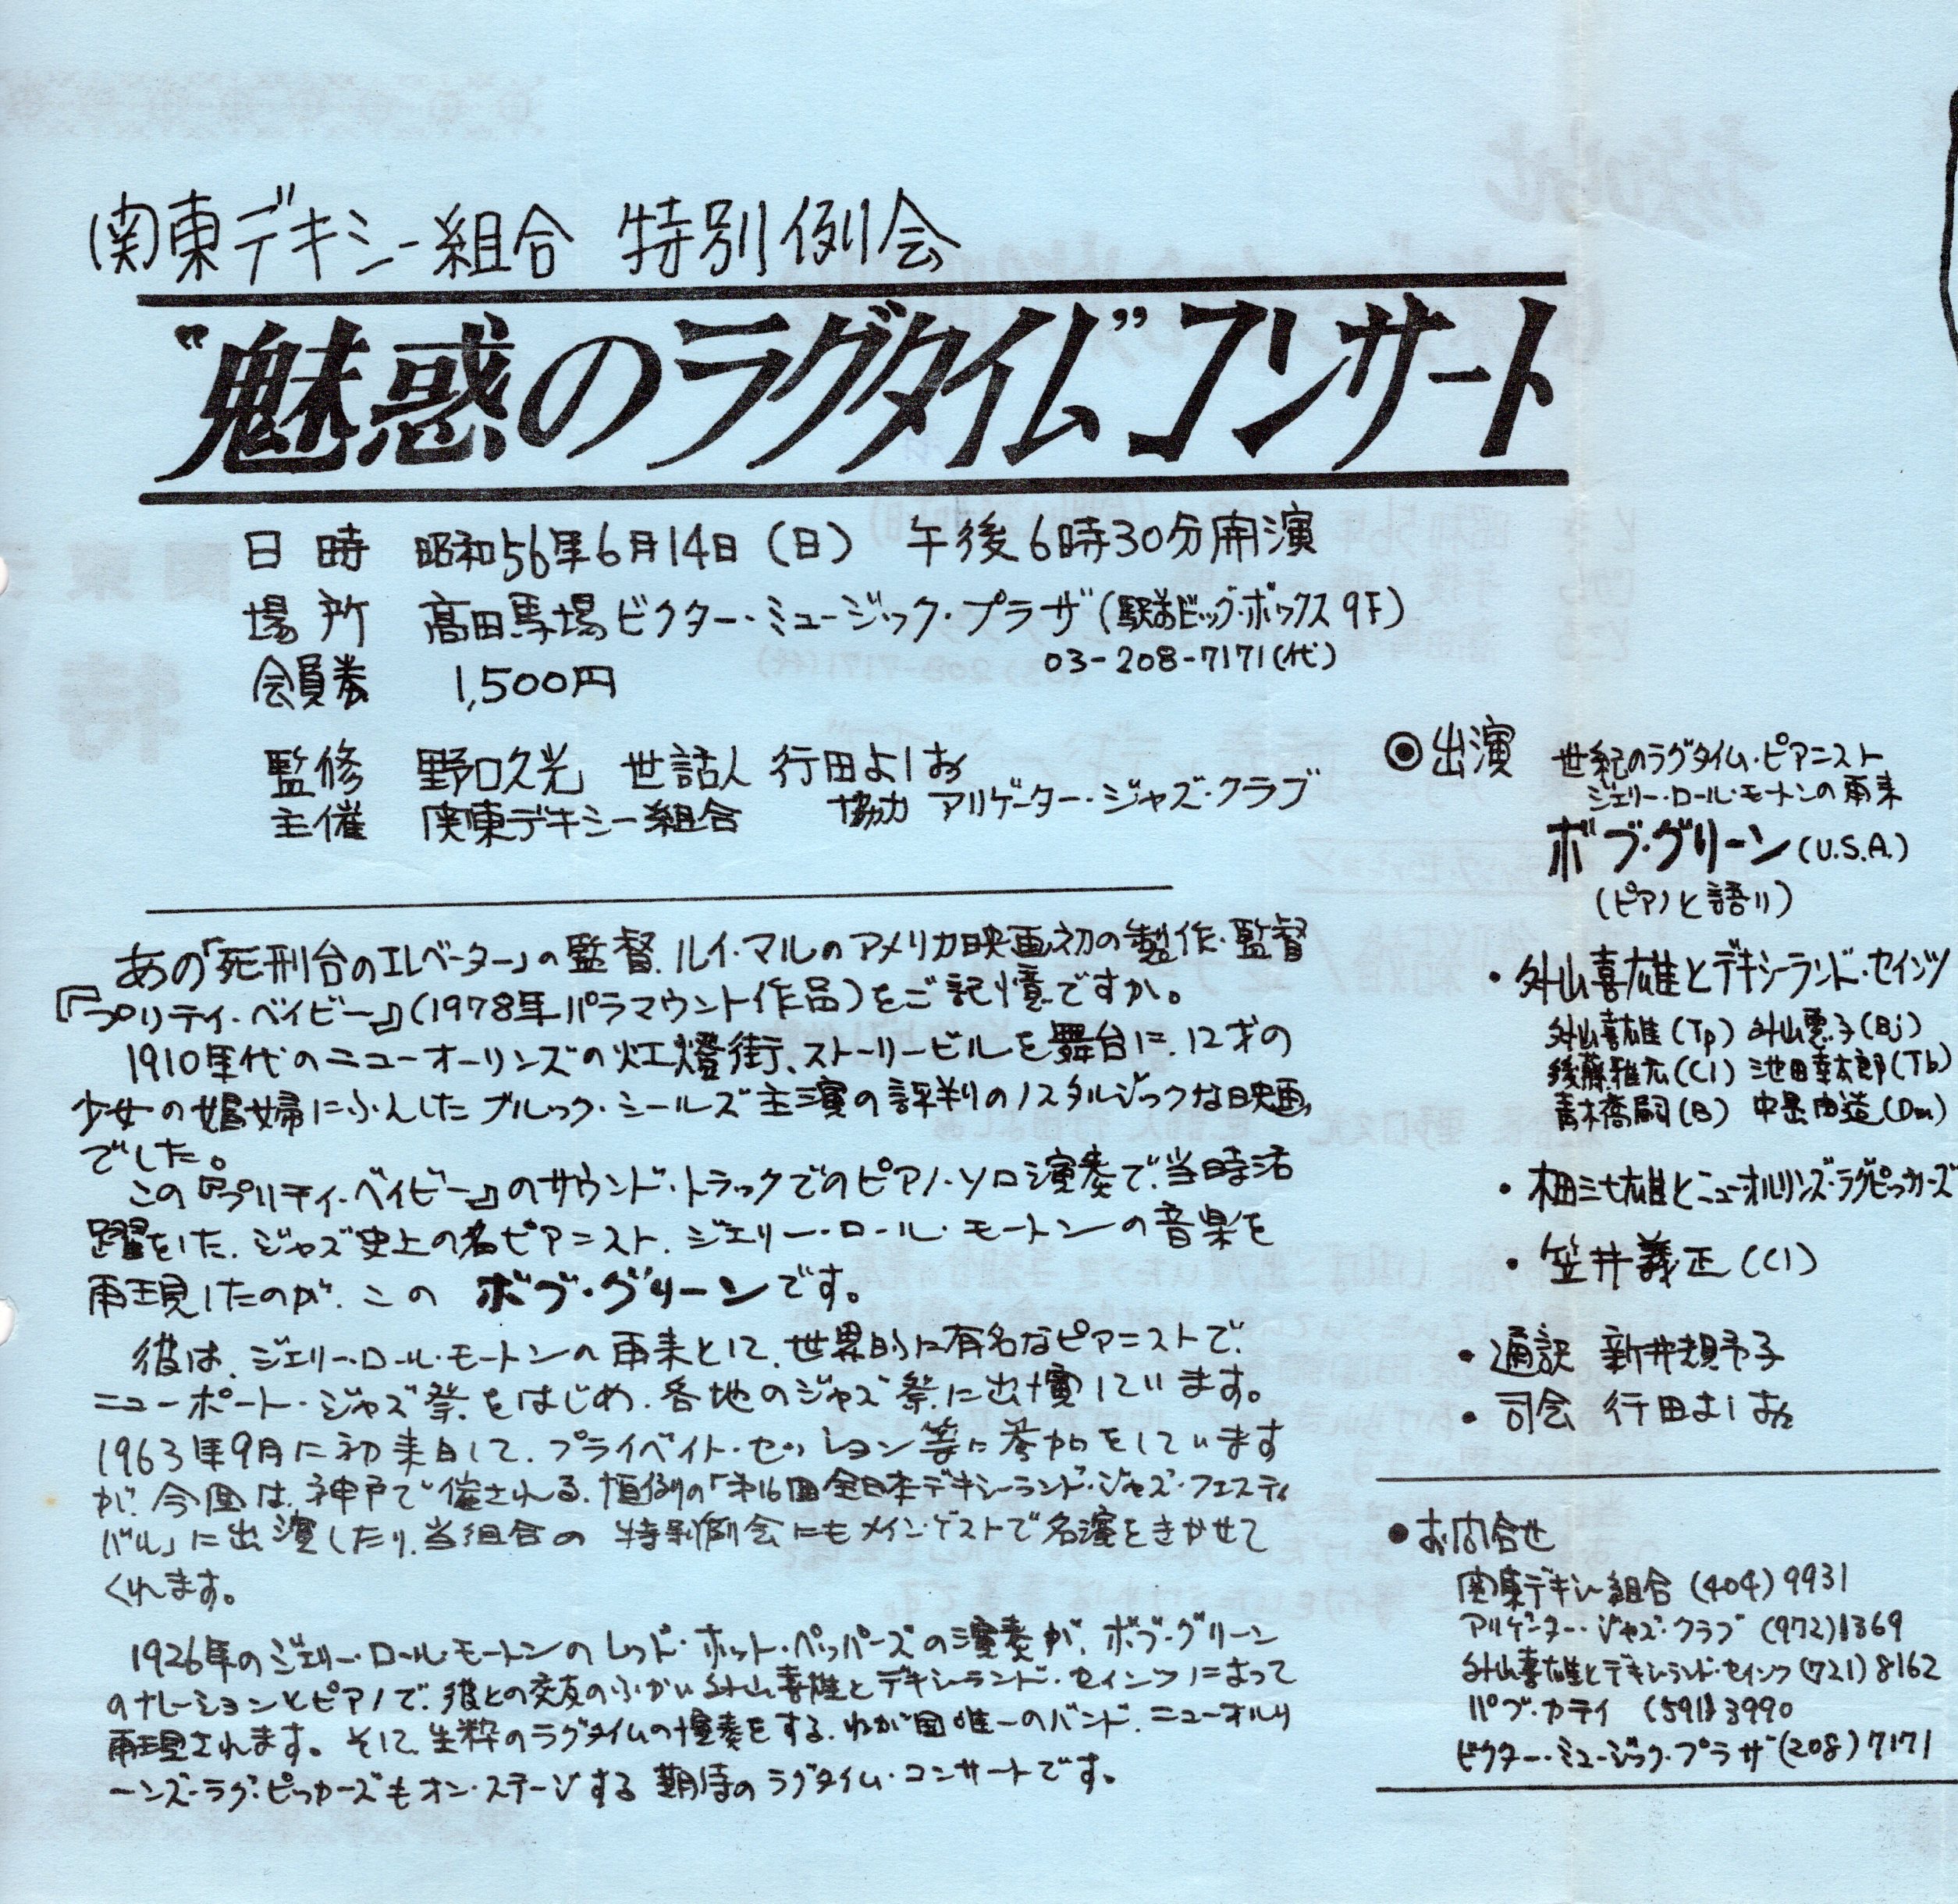 関東デキシー組合 特別例会
"魅惑のラグタイム" コンサート
日時 昭和56年6月14日(日) 午後6時30分開演
場所 高田馬場ビクター・ミュージック・プラザ(駅前ビッグ・ボックス9F)
03-208-7171(代)
会員券 1,500円
監修 野口久光 世話人 行田よしお
主催 関東デキシー組合 協力 アリゲーター・ジャズ・クラブ
あの「死刑台のエレベーター」の監督、ルイ・マルのアメリカ映画初の製作・監督
『プリティ・ベイビー』(1978年パラマウント作品)をご記憶ですか。
1910年代のニューオーリンズの紅燈街、ストーリービルを舞台に、12才の
少女の娼婦にふんした ブルック・シールズ主演の評判のノスタルジックな映画
でした。
この『プリティ・ベイビー』のサウンド・トラックでのピアノ・ソロ演奏で、当時活
躍をした、ジャズ史上の名ピアニスト、ジェリー・ロール・モートンの音楽を
再現したのが、この ボブ・グリーンです。
彼は、ジェリー・ロール・モートンの再来として、世界的に有名なピアニストで、
ニューポート・ジャズ祭をはじめ、各地のジャズ祭に出演しています。
1963年9月に初来日して、プライベイト・セッション等に参加をしています
が、今回は、神戸で催される、恒例の「第16回全日本デキシーランド・ジャズ・フェスティ
バル」に出演したり、当組合の 特別例会にもメイン・ゲストで名演をきかせて
くれます。
1926年のジェリー・ロール・モートンのレッド・ホット・ペッパーズの演奏が、ボブ・グリーン
のナレーションとピアノで、彼との交友のふかい外山喜雄とデキシーランド・セインツによって
再現されます。そして、生粋のラグタイムの演奏をする、わが国唯一のバンド、ニューオルリ
ーンズ・ラグ・ピッカーズもオン・ステージする 期待のラグタイム・コンサートです。
◉出演 世紀のラグタイム・ピアニスト
ジェリー・ロール・モートンの再来
ボブ・グリーン(U.S.A.)
(ピアノと語り)
・外山喜雄とデキシーランド・セインツ
外山喜雄(Tp) 外山恵子(Bj)
後藤雅広(Cl) 池田幸太郎(Tb)
青木(B) 中島(Dm)
・ニューオルリンズ・ラグピッカーズ
・笠井義正(Cl)
・通訳 新井規予子
・司会 行田よしお
●お問合せ
関東デキシー組合 (404)9931
アリゲーター・ジャズ・クラブ (972)1369
外山喜雄とデキシーランド・セインツ (721)8162
パブ・カテイ (591)3990
ビクター・ミュージック・プラザ (208)7171